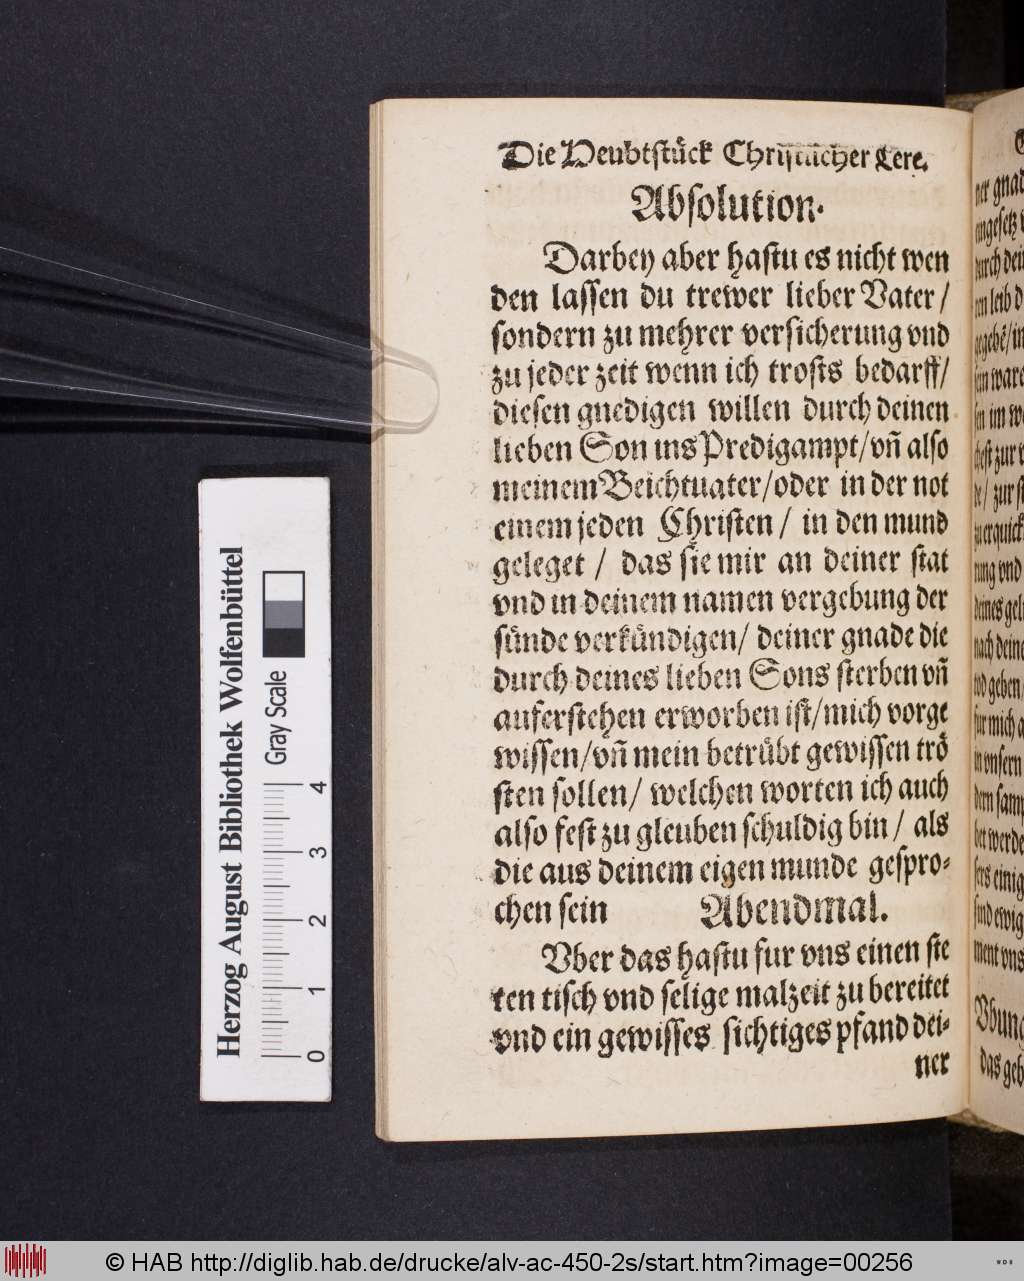 Die Heubtstück Christlicher Lere.
Absolution.
Darbey aber hastu es nicht wen
den lassen du trewer lieber Vater /
sondern zu mehrer versicherung vnd
zu jeder zeit wenn ich trosts bedarff/
diesen gnedigen willen durch deinen
lieben Son ins Predigampt/vñ also
meinem Beichtuater/oder in der not
einem jeden Christen / in den mund
geleget / das sie mir an deiner stat
vnd in deinem namen vergebung der
sünde verkündigen/ deiner gnade die
durch deines lieben Sons sterben vñ
auferstehen erworben ist/mich vorge
wissen/vñ mein betrübt gewissen trö
sten sollen/ welchen worten ich auch
also fest zu gleuben schuldig bin / als
die aus deinem eigen munde gespro-
chen sein Abendmal.
Vber das hastu fur vns einen ste
ten tisch vnd selige malzeit zu bereitet
vnd ein gewisses sichtiges pfand dei-
ner
Herzog August Bibliothek Wolfenbüttel
Gray Scale
0 1 2 3 4
© HAB http://diglib.hab.de/drucke/alv-ac-450-2s/start.htm?image=00256